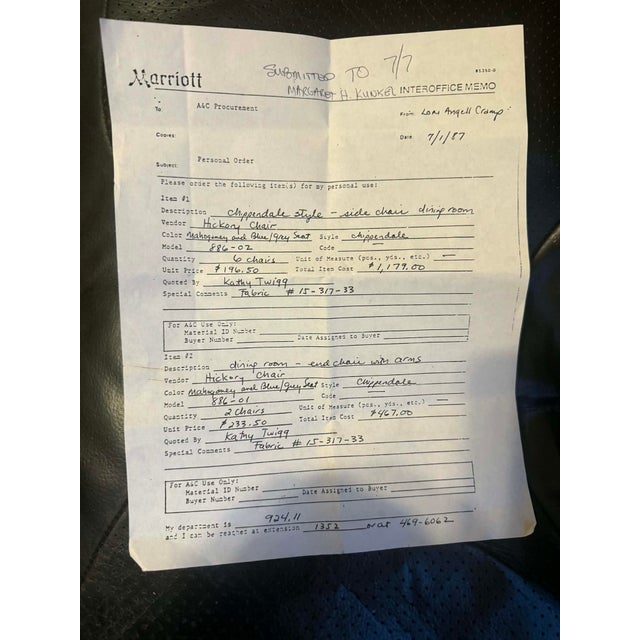 SUBMITTED TO 7/7
Marriott
MARGARET H. KUNKEL INTEROFFICE MEMO
To: A&C Procurement From: Lori Angell Cramp
Copies: Date: 7/1/87
Subject: Personal Order
Please order the following item(s) for my personal use:
Item #1
Description Chippendale style - side chair dining room
Vendor Hickory Chair
Color Mahogoney and Blue/grey Seat Style Chippendale
Model 886-02 Code
Quantity 6 chairs Unit of Measure (pcs., yds., etc.) —
Unit Price $196.50 Total Item Cost $1,179.00
Quoted By Kathy Twigg
Special Comments Fabric # 15-317-33
For A&C Use Only:
Material ID Number
Buyer Number Date Assigned to Buyer
Item #2
Description dining room - end chair with arms
Vendor Hickory Chair
Color Mahogoney and Blue/grey Seat Style Chippendale
Model 886-01 Code
Quantity 2 chairs Unit of Measure (pcs., yds., etc.) —
Unit Price $233.50 Total Item Cost $467.00
Quoted By Kathy Twigg
Special Comments Fabric # 15-317-33
For A&C Use Only:
Material ID Number
Buyer Number Date Assigned to Buyer
My department is 924.11
and I can be reached at extension 1352 or at 469-6062